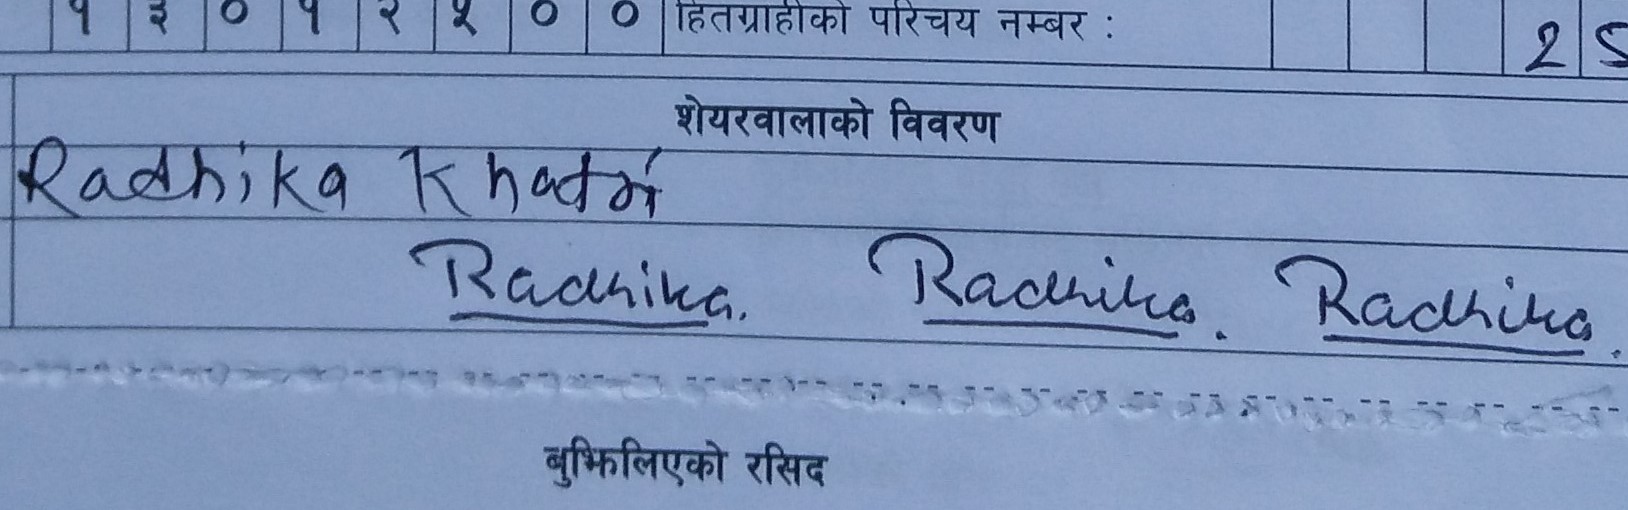 १ ३ ० १ २ २ ० ० हितग्राहीको परिचय नम्बर : 2 5
शेयरवालाको विवरण
Radhika Khatri
Radhika. Radhika. Radhika.
बुझिलिएको रसिद